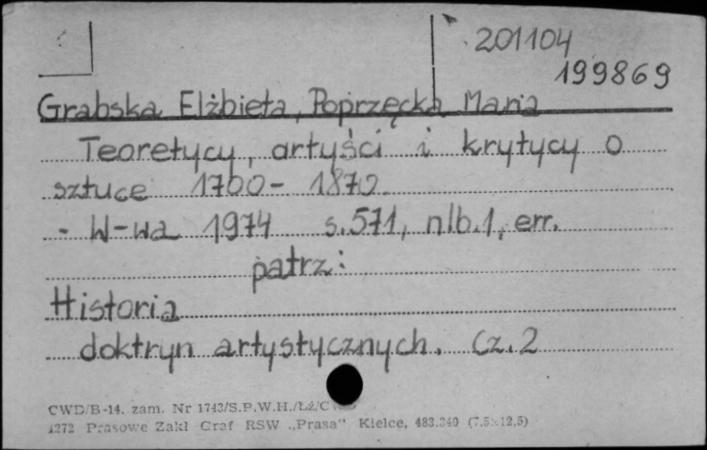 201104
199869
Grabska Elżbieta, Poprzęcka Maria
Teoretycy, artyści i krytycy o
sztuce 1700-1870
- W-wa 1974 s.571, nlb.1, err.
patrz:
Historia
doktryn artystycznych. Cz.2
CWD/B-14. zam. Nr 1743/S.P.W.H./Łź/C
1272 Prasowe Zakł Graf RSW „Prasa" Kielce, 483.340 (7,5×12,5)